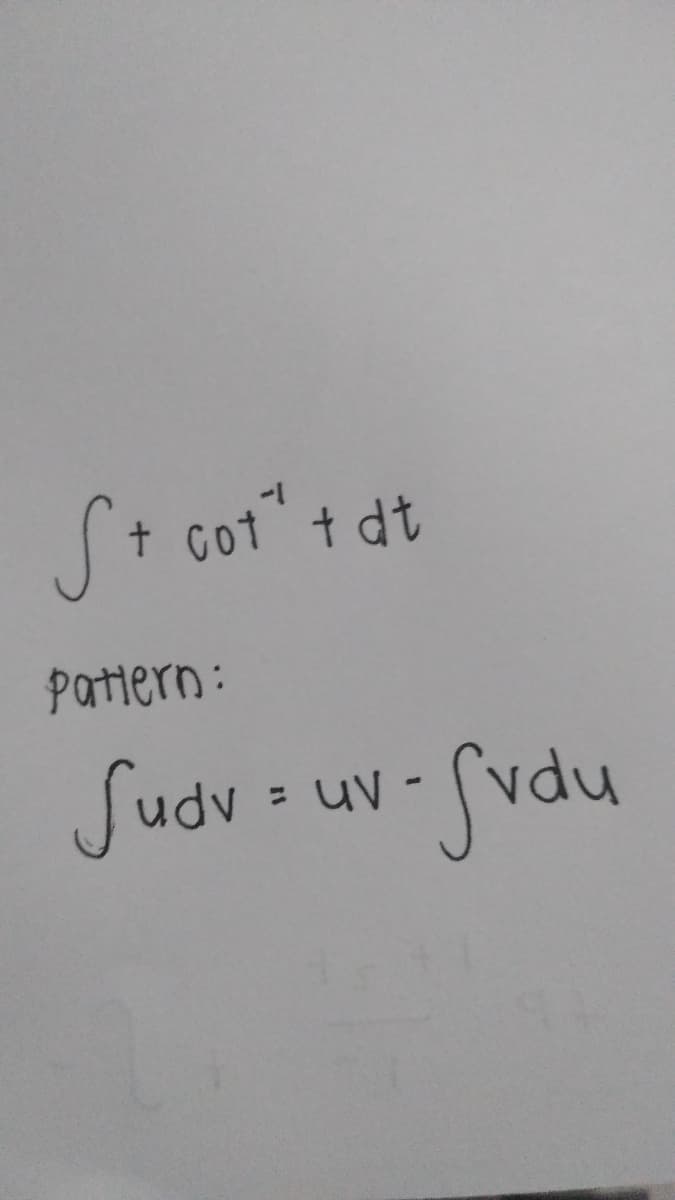 ∫ t cot⁻¹ t dt
pattern:
∫udv = uv - ∫vdu